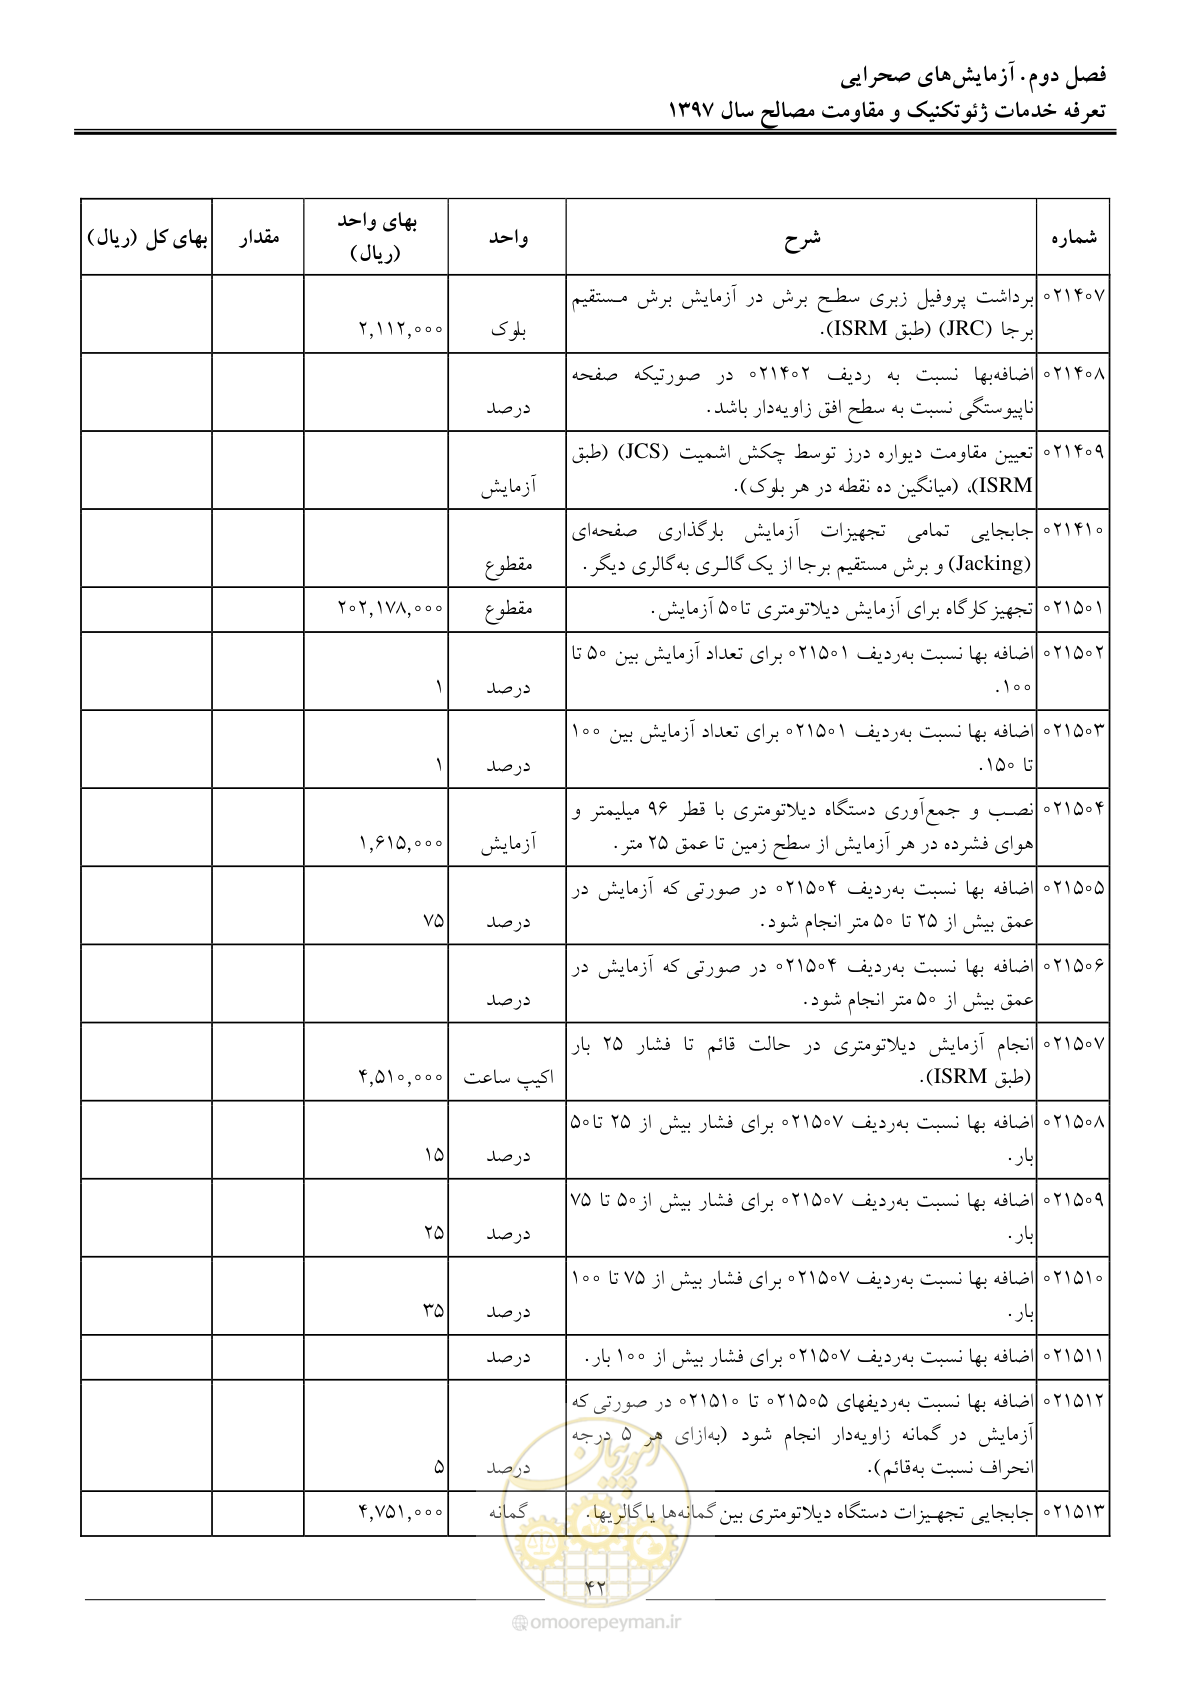 فصل دوم. آزمایش‌های صحرایی
تعرفه خدمات ژئوتکنیک و مقاومت مصالح سال ۱۳۹۷
شماره شرح واحد بهای واحد (ریال) مقدار بهای کل (ریال)
۰۲۱۴۰۷ برداشت پروفیل زبری سطح برش در آزمایش برش مستقیم
برجا (JRC) (طبق ISRM). بلوک ۲,۱۱۲,۰۰۰
۰۲۱۴۰۸ اضافه‌بها نسبت به ردیف ۰۲۱۴۰۲ در صورتیکه صفحه
ناپیوستگی نسبت به سطح افق زاویه‌دار باشد. درصد
۰۲۱۴۰۹ تعیین مقاومت دیواره درز توسط چکش اشمیت (JCS) (طبق
ISRM)، (میانگین ده نقطه در هر بلوک). آزمایش
۰۲۱۴۱۰ جابجایی تمامی تجهیزات آزمایش بارگذاری صفحه‌ای
(Jacking) و برش مستقیم برجا از یک گالری به گالری دیگر. مقطوع
۰۲۱۵۰۱ تجهیز کارگاه برای آزمایش دیلاتومتری تا ۵۰ آزمایش. مقطوع ۲۰۲,۱۷۸,۰۰۰
۰۲۱۵۰۲ اضافه بها نسبت به‌ردیف ۰۲۱۵۰۱ برای تعداد آزمایش بین ۵۰ تا
۱۰۰. درصد ۱
۰۲۱۵۰۳ اضافه بها نسبت به‌ردیف ۰۲۱۵۰۱ برای تعداد آزمایش بین ۱۰۰
تا ۱۵۰. درصد ۱
۰۲۱۵۰۴ نصب و جمع‌آوری دستگاه دیلاتومتری با قطر ۹۶ میلیمتر و
هوای فشرده در هر آزمایش از سطح زمین تا عمق ۲۵ متر. آزمایش ۱,۶۱۵,۰۰۰
۰۲۱۵۰۵ اضافه بها نسبت به‌ردیف ۰۲۱۵۰۴ در صورتی که آزمایش در
عمق بیش از ۲۵ تا ۵۰ متر انجام شود. درصد ۷۵
۰۲۱۵۰۶ اضافه بها نسبت به‌ردیف ۰۲۱۵۰۴ در صورتی که آزمایش در
عمق بیش از ۵۰ متر انجام شود. درصد
۰۲۱۵۰۷ انجام آزمایش دیلاتومتری در حالت قائم تا فشار ۲۵ بار
(طبق ISRM). اکیپ ساعت ۴,۵۱۰,۰۰۰
۰۲۱۵۰۸ اضافه بها نسبت به‌ردیف ۰۲۱۵۰۷ برای فشار بیش از ۲۵ تا ۵۰
بار. درصد ۱۵
۰۲۱۵۰۹ اضافه بها نسبت به‌ردیف ۰۲۱۵۰۷ برای فشار بیش از ۵۰ تا ۷۵
بار. درصد ۲۵
۰۲۱۵۱۰ اضافه بها نسبت به‌ردیف ۰۲۱۵۰۷ برای فشار بیش از ۷۵ تا ۱۰۰
بار. درصد ۳۵
۰۲۱۵۱۱ اضافه بها نسبت به‌ردیف ۰۲۱۵۰۷ برای فشار بیش از ۱۰۰ بار. درصد
۰۲۱۵۱۲ اضافه بها نسبت به‌ردیفهای ۰۲۱۵۰۵ تا ۰۲۱۵۱۰ در صورتی که
آزمایش در گمانه زاویه‌دار انجام شود (به‌ازای هر ۵ درجه
انحراف نسبت به‌قائم). درصد ۵
۰۲۱۵۱۳ جابجایی تجهیزات دستگاه دیلاتومتری بین گمانه‌ها یا گالریها. گمانه ۴,۷۵۱,۰۰۰
امور پیمان
۴۲
omoorepeyman.ir